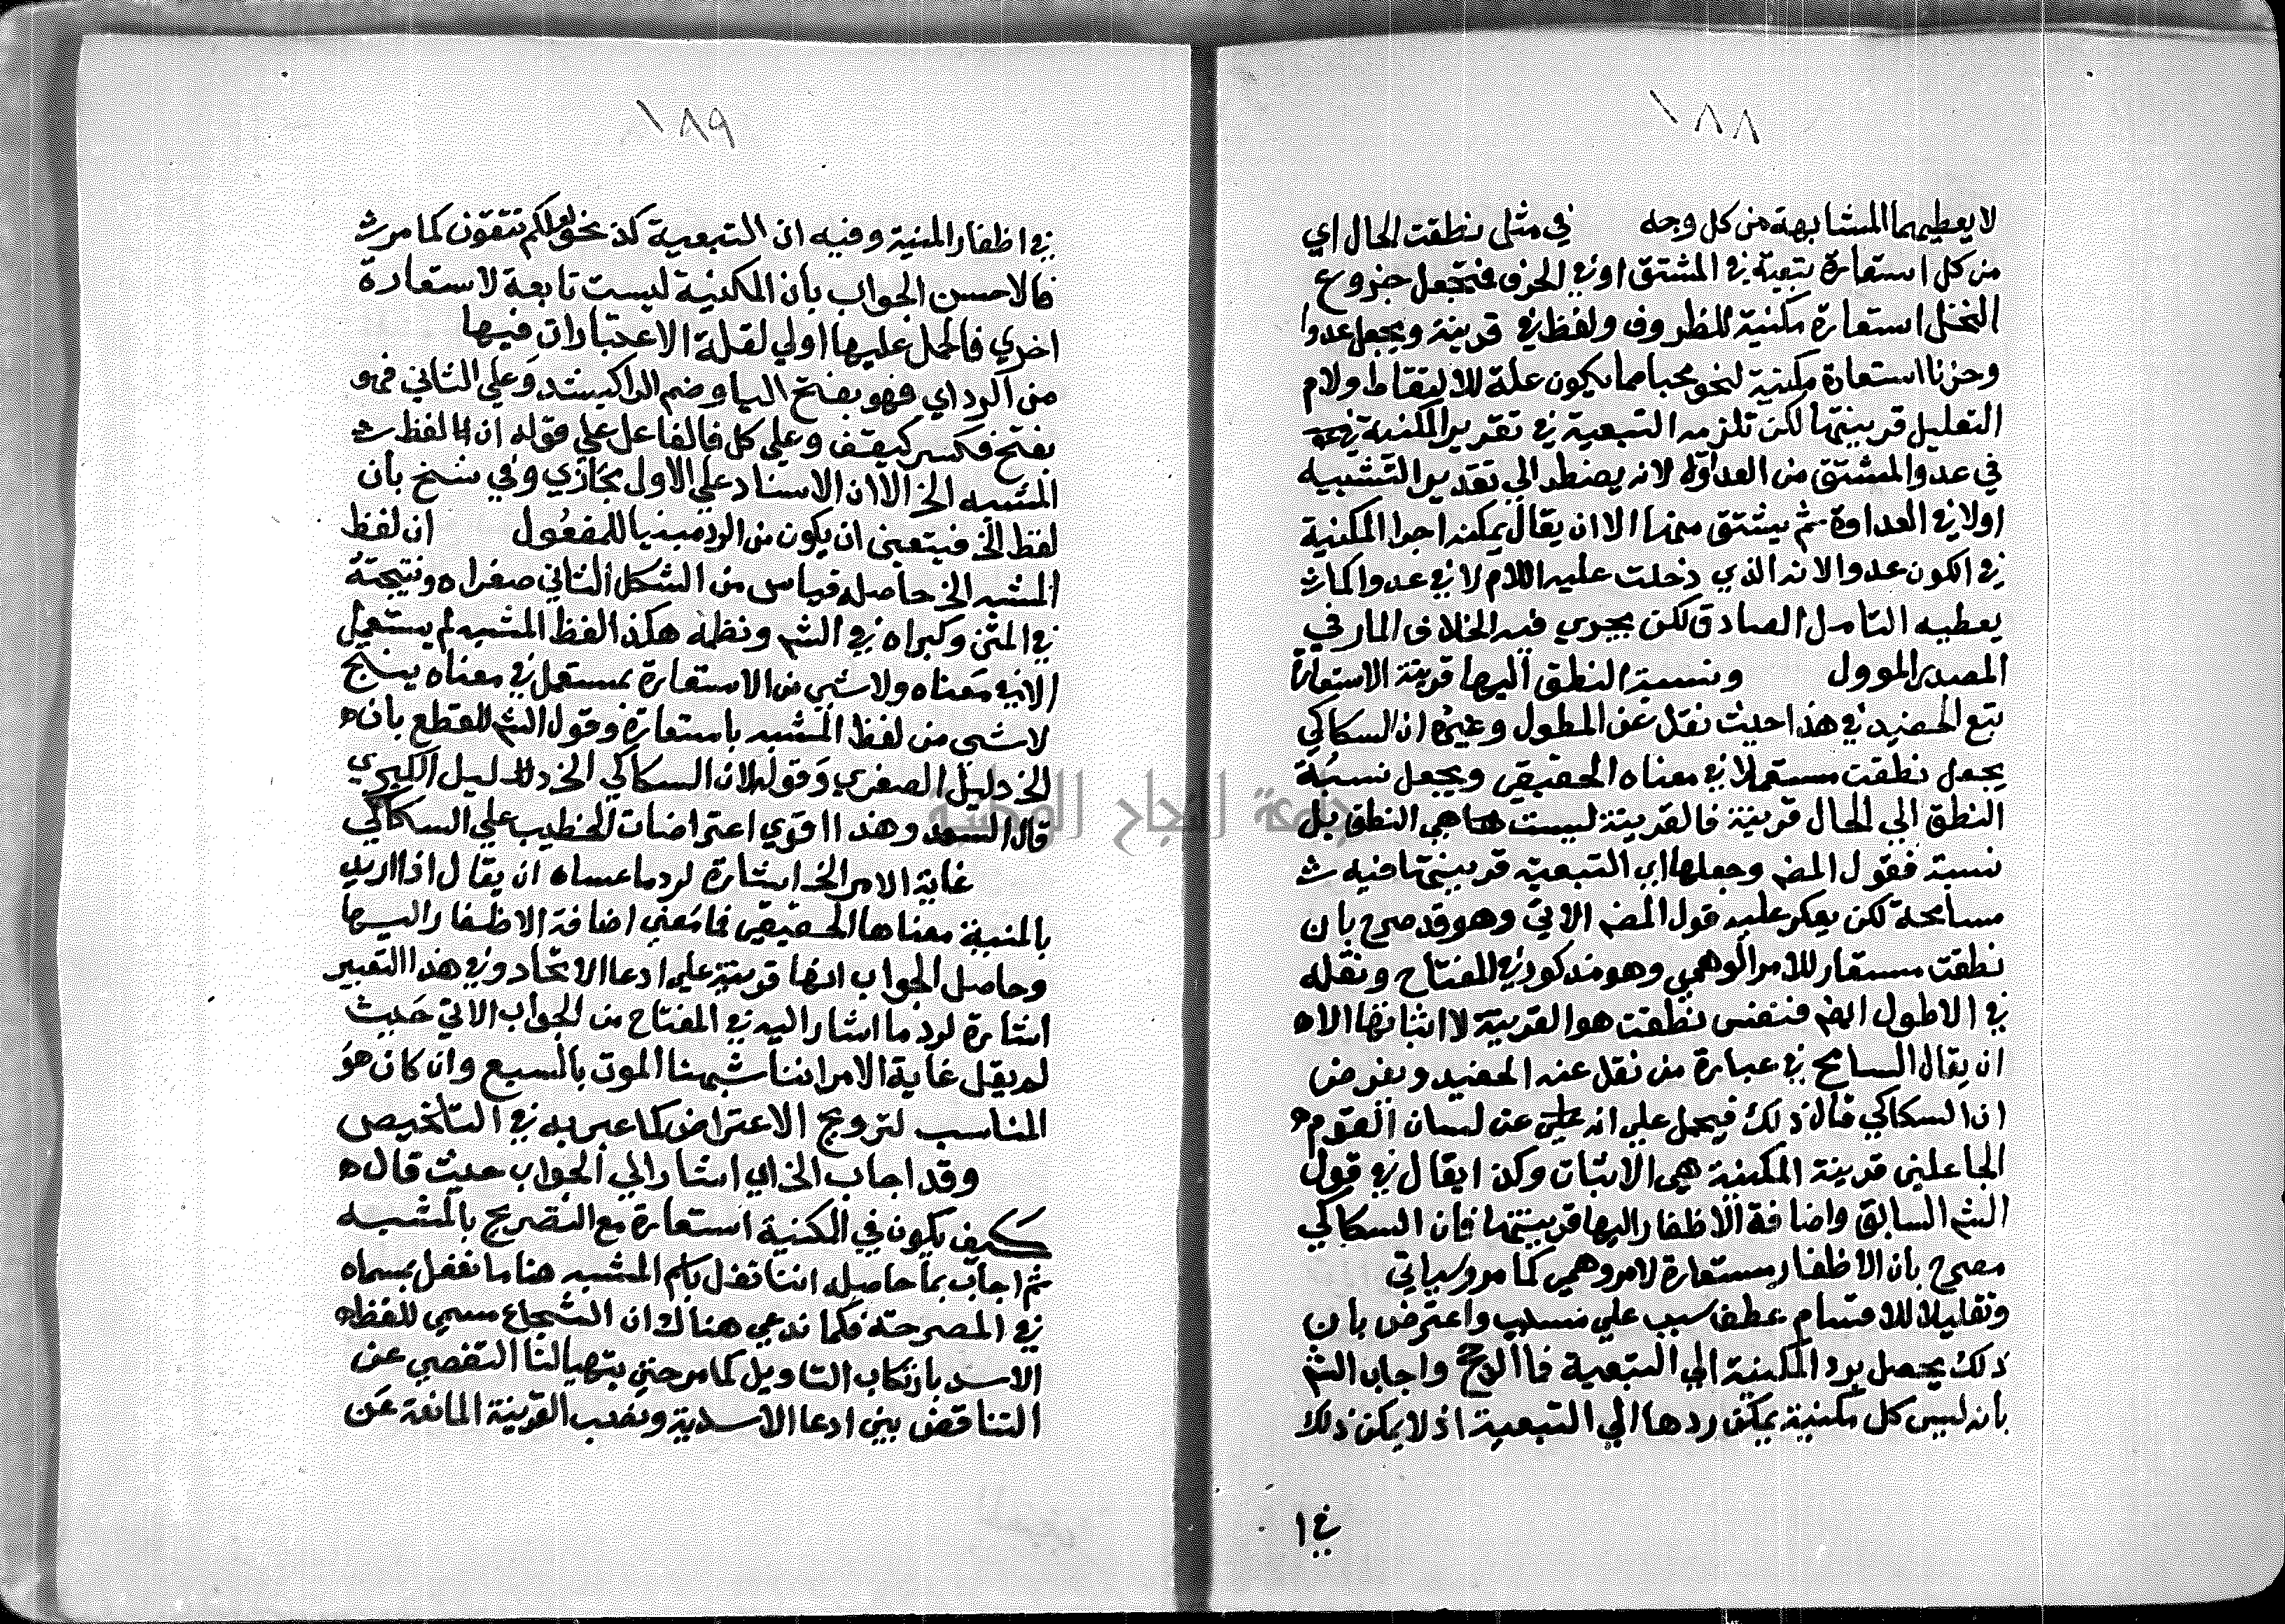 ١٨٨
لا يعطيهما المشابهة من كل وجه في مثلي نطقت الحال اي
من كل استعارة تبعية في المشتق او في الحرف فتجعل جذوع
النخل استعارة مكنية للظروف ولفظ في قرينة ويجعل عدوا
وحزنا استعارة مكنية لنحو محبا مما يكون علة للالتقاط ولام
التعليل قرينتها لكن تلزمه التبعية في تقرير المكنية
في عدو المشتق من العداوة لانه يضطر الي تقدير التشبيه
اولا في العداوة ثم يشتق منها الا ان يقال يمكنه اجرا المكنية
في اكون عدوا لانه الذي دخلت عليه اللام لا في عدوا كما
يعطيه التامل الصادق لكن يجري فيه الخلاف المار في
المصدر الموول ونسبة النطق اليها قرينة الاستعارة
تبع الحفيد في هذا حيث نقل عن المطول وغيره ان السكاكي
يجعل نطقت مستعملا في معناه الحقيقي ويجعل نسبة
النطق الي الحال قرينة فالقرينة ليست هي النطق بل
نسبة فقول المص وجعلها اي التبعية قرينتها فيه
مسامحة لكن يعكر عليه قول المص الاتي وهو قد صرح بان
نطقت مستعار للامر الوهمي وهو مذكور في المفتاح ونقله
في الاطول ايضا فنفس نطقت هو القرينة لا اثباتها الا
ان يقال السامح في عبارة من نقل عنه الحفيد ويفرض
ان السكاكي قال ذلك فيحمل علي انه علي عن لسان القوم
الجاعلين قرينة المكنية هي الاثبات وكذا يقال في قول
الش السابق واضافة الاظفار اليها قرينتها فان السكاكي
مصرح بان الاظفار مستعارة لامر وهمي كما مر وسياتي
وتقليلا للاقسام عطف سبب علي مسبب واعترض بان
ذلك يحصل برد المكنية الي التبعية فما المرجح واجاب الش
بانه ليس كل مكنية يمكن ردها الي التبعية اذ لا يمكن ذلك
في ا
١٨٩
في اظفار المنية وفيه ان التبعية كذ نحو لعلكم تتقون كما مر
فالاحسن الجواب بان المكنية ليست تابعة لاستعارة
اخري فالحمل عليها اولي لقلة الاعتبارات فيها
من الرد اي فهو بفتح اليا وضم الرا كيشد وعلي الثاني فهو
بفتح فكسر كيقف وعلي كل فالفاعل علي قوله ان لفظ
المشبه الخ الا ان الاسناد علي الاول مجازي وفي نسخ بان
لفظ الخ فيتعين ان يكون من الرد مبنيا للمفعول ان لفظ
المشبه الخ حاصله قياس من الشكل الثاني صغراه ونتيجته
في المتن وكبراه في الش ونظمه هكذا لفظ المشبه لم يستعمل
الا في معناه ولا شي من الاستعارة بمستعمل في معناه ينتج
لا شي من لفظ المشبه باستعارة وقول الش للقطع بان
الخ دليل الصغري وقوله لان السكاكي الخ دليل الكبري
قال السعد وهذا اقوي اعتراضات الخطيب علي السكاكي
غاية الامر الخ اشارة لرد ما عساه ان يقال اذا اريد
بالمنية معناها الحقيقي فما معني اضافة الاظفار اليها
وحاصل الجواب انها قرينة علي ادعا الاتحاد وفي هذا التعبير
اشارة لرد ما اشار اليه في المفتاح من الجواب الاتي حيث
لم يقل غاية الامر اننا شبهنا الموت بالسبع وان كان هو
المناسب لترويج الاعتراض كما عبر به في التلخيص
وقد اجاب الخ اي اشار الي الجواب حيث قال
كيف يكون في المكنية استعارة مع التصريح بالمشبه
ثم اجاب بما حاصله اننا نفعل باسم المشبه هنا ما نفعل بمسماه
في المصرحة فكما ندعي هناك ان الشجاع مسمي للفظ
الاسد بارتكاب التاويل كما مر حتي يتهيا لنا التفصي عن
التناقض بين ادعا الاسدية ونصب القرينة المانعة عن
جامعة النجاح الوطنية